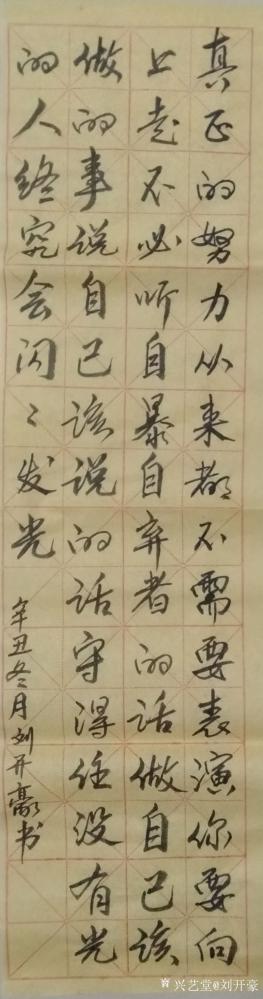 真正的努力从来都不需要表演你要向
上走不必听自暴自弃者的话做自己该
做的事说自己该说的话守得住没有光
的人终究会闪〻发光
辛丑冬月刘开豪书
兴艺堂@刘开豪